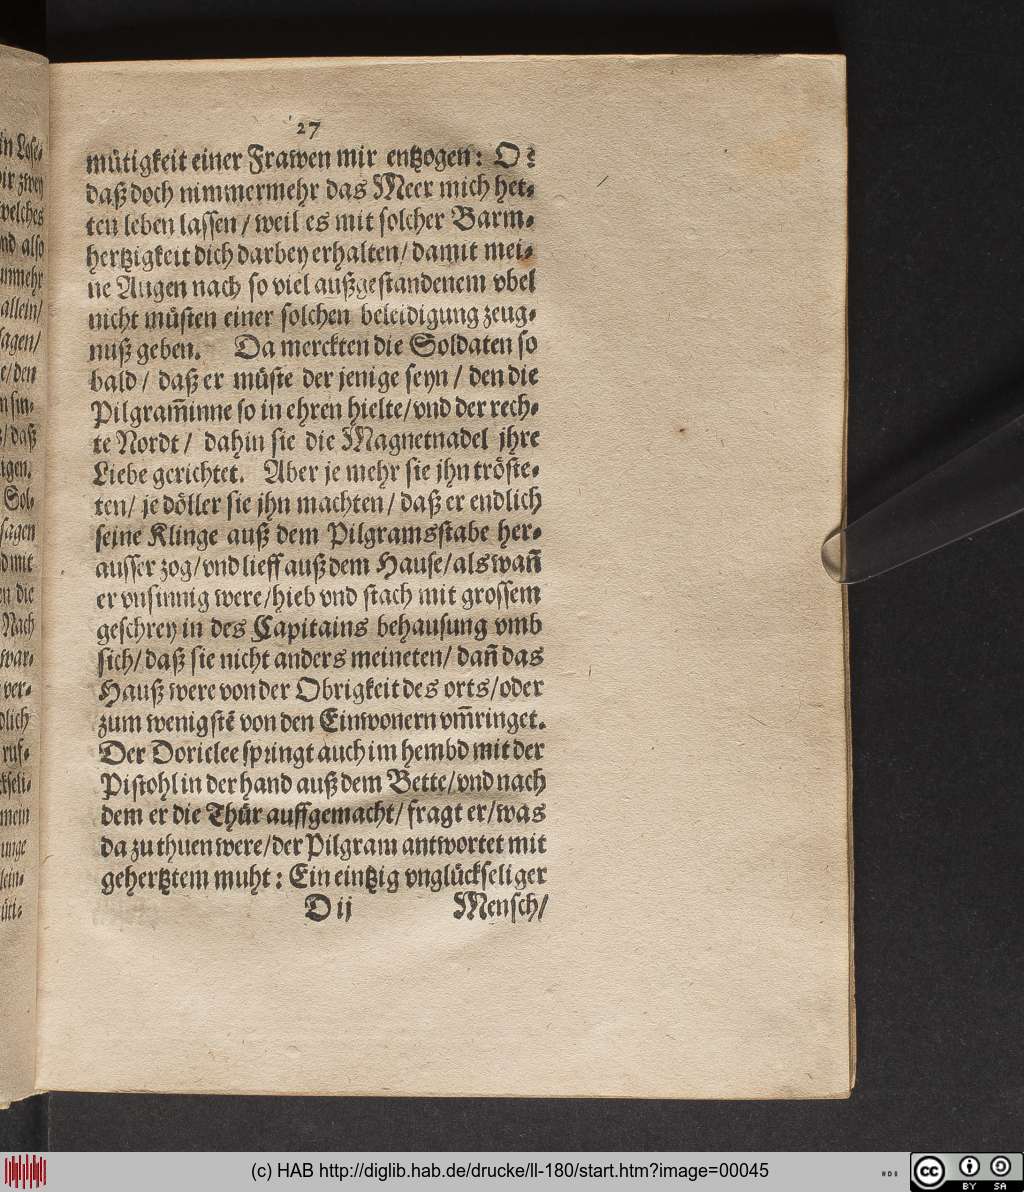 27
mütigkeit einer Frawen mir entzogen: O
daß doch nimmermehr das Meer mich het-
ten leben lassen / weil es mit solcher Barm-
hertzigkeit dich darbey erhalten / damit mei-
ne Augen nach so viel außgestandenem vbel
nicht müsten einer solchen beleidigung zeug-
nuß geben. Da merckten die Soldaten so
bald / daß er müste der jenige seyn / den die
Pilgram̃inne so in ehren hielte / vnd der rech-
te Nordt / dahin sie die Magnetnadel jhre
Liebe gerichtet. Aber je mehr sie jhn tröste-
ten / je döller sie jhn machten / daß er endlich
seine Klinge auß dem Pilgramsstabe her-
ausser zog / vnd lieff auß dem Hause / als wañ
er vnsinnig were / hieb vnd stach mit grossem
geschrey in des Capitains behausung vmb
sich / daß sie nicht anders meineten / dañ das
Hauß were von der Obrigkeit des orts / oder
zum wenigstẽ von den Einwonern vm̃ringet.
Der Doriclee springt auch im hembd mit der
Pistohl in der hand auß dem Bette / vnd nach
dem er die Thür auffgemacht / fragt er / was
da zu thuen were / der Pilgram antwortet mit
gehertztem muht: Ein eintzig vnglückseliger
D ij Mensch /
welches
nd also
allein /
sagen /
Sol-
sagen
mit
die
Nach
war-
ver-
ruf-
mein
(c) HAB http://diglib.hab.de/drucke/ll-180/start.htm?image=00045
cc BY SA